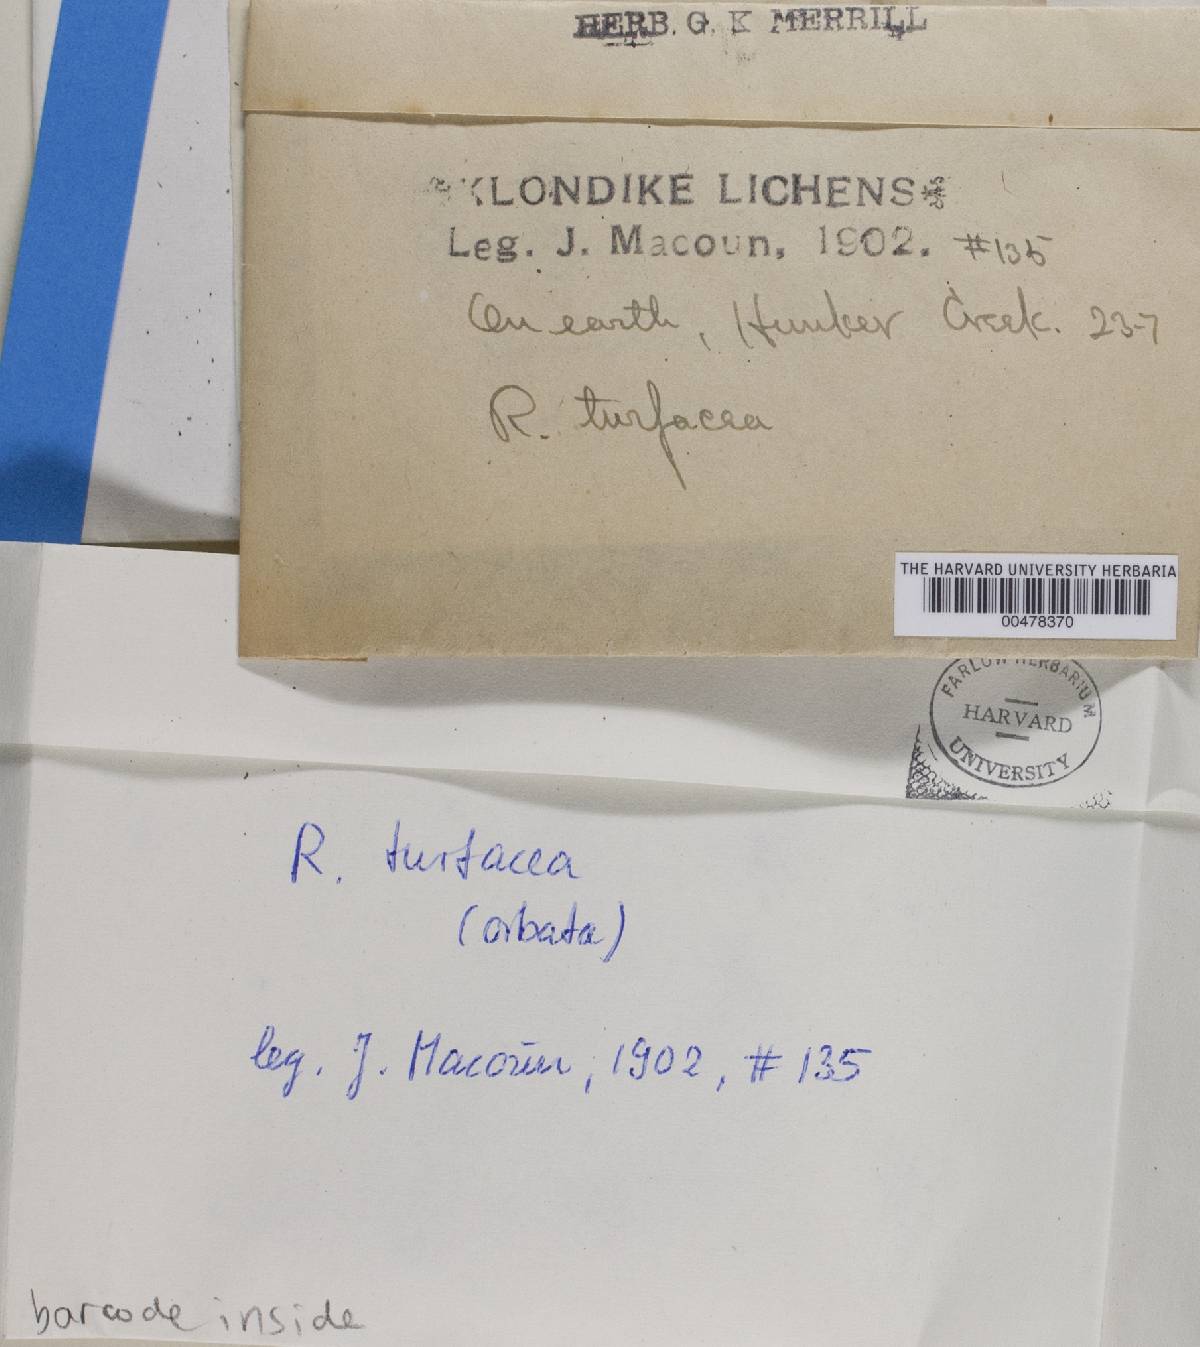 HERB. G. K MERRILL
KLONDIKE LICHENS
Leg. J. Macoun, 1902. #135
On earth, Hunker Creek. 23-7
R. turfacea
THE HARVARD UNIVERSITY HERBARIA
00478370
FARLOW HERBARIUM
HARVARD
UNIVERSITY
R. turfacea
(orbata)
leg. J. Macoun, 1902, # 135
barcode inside